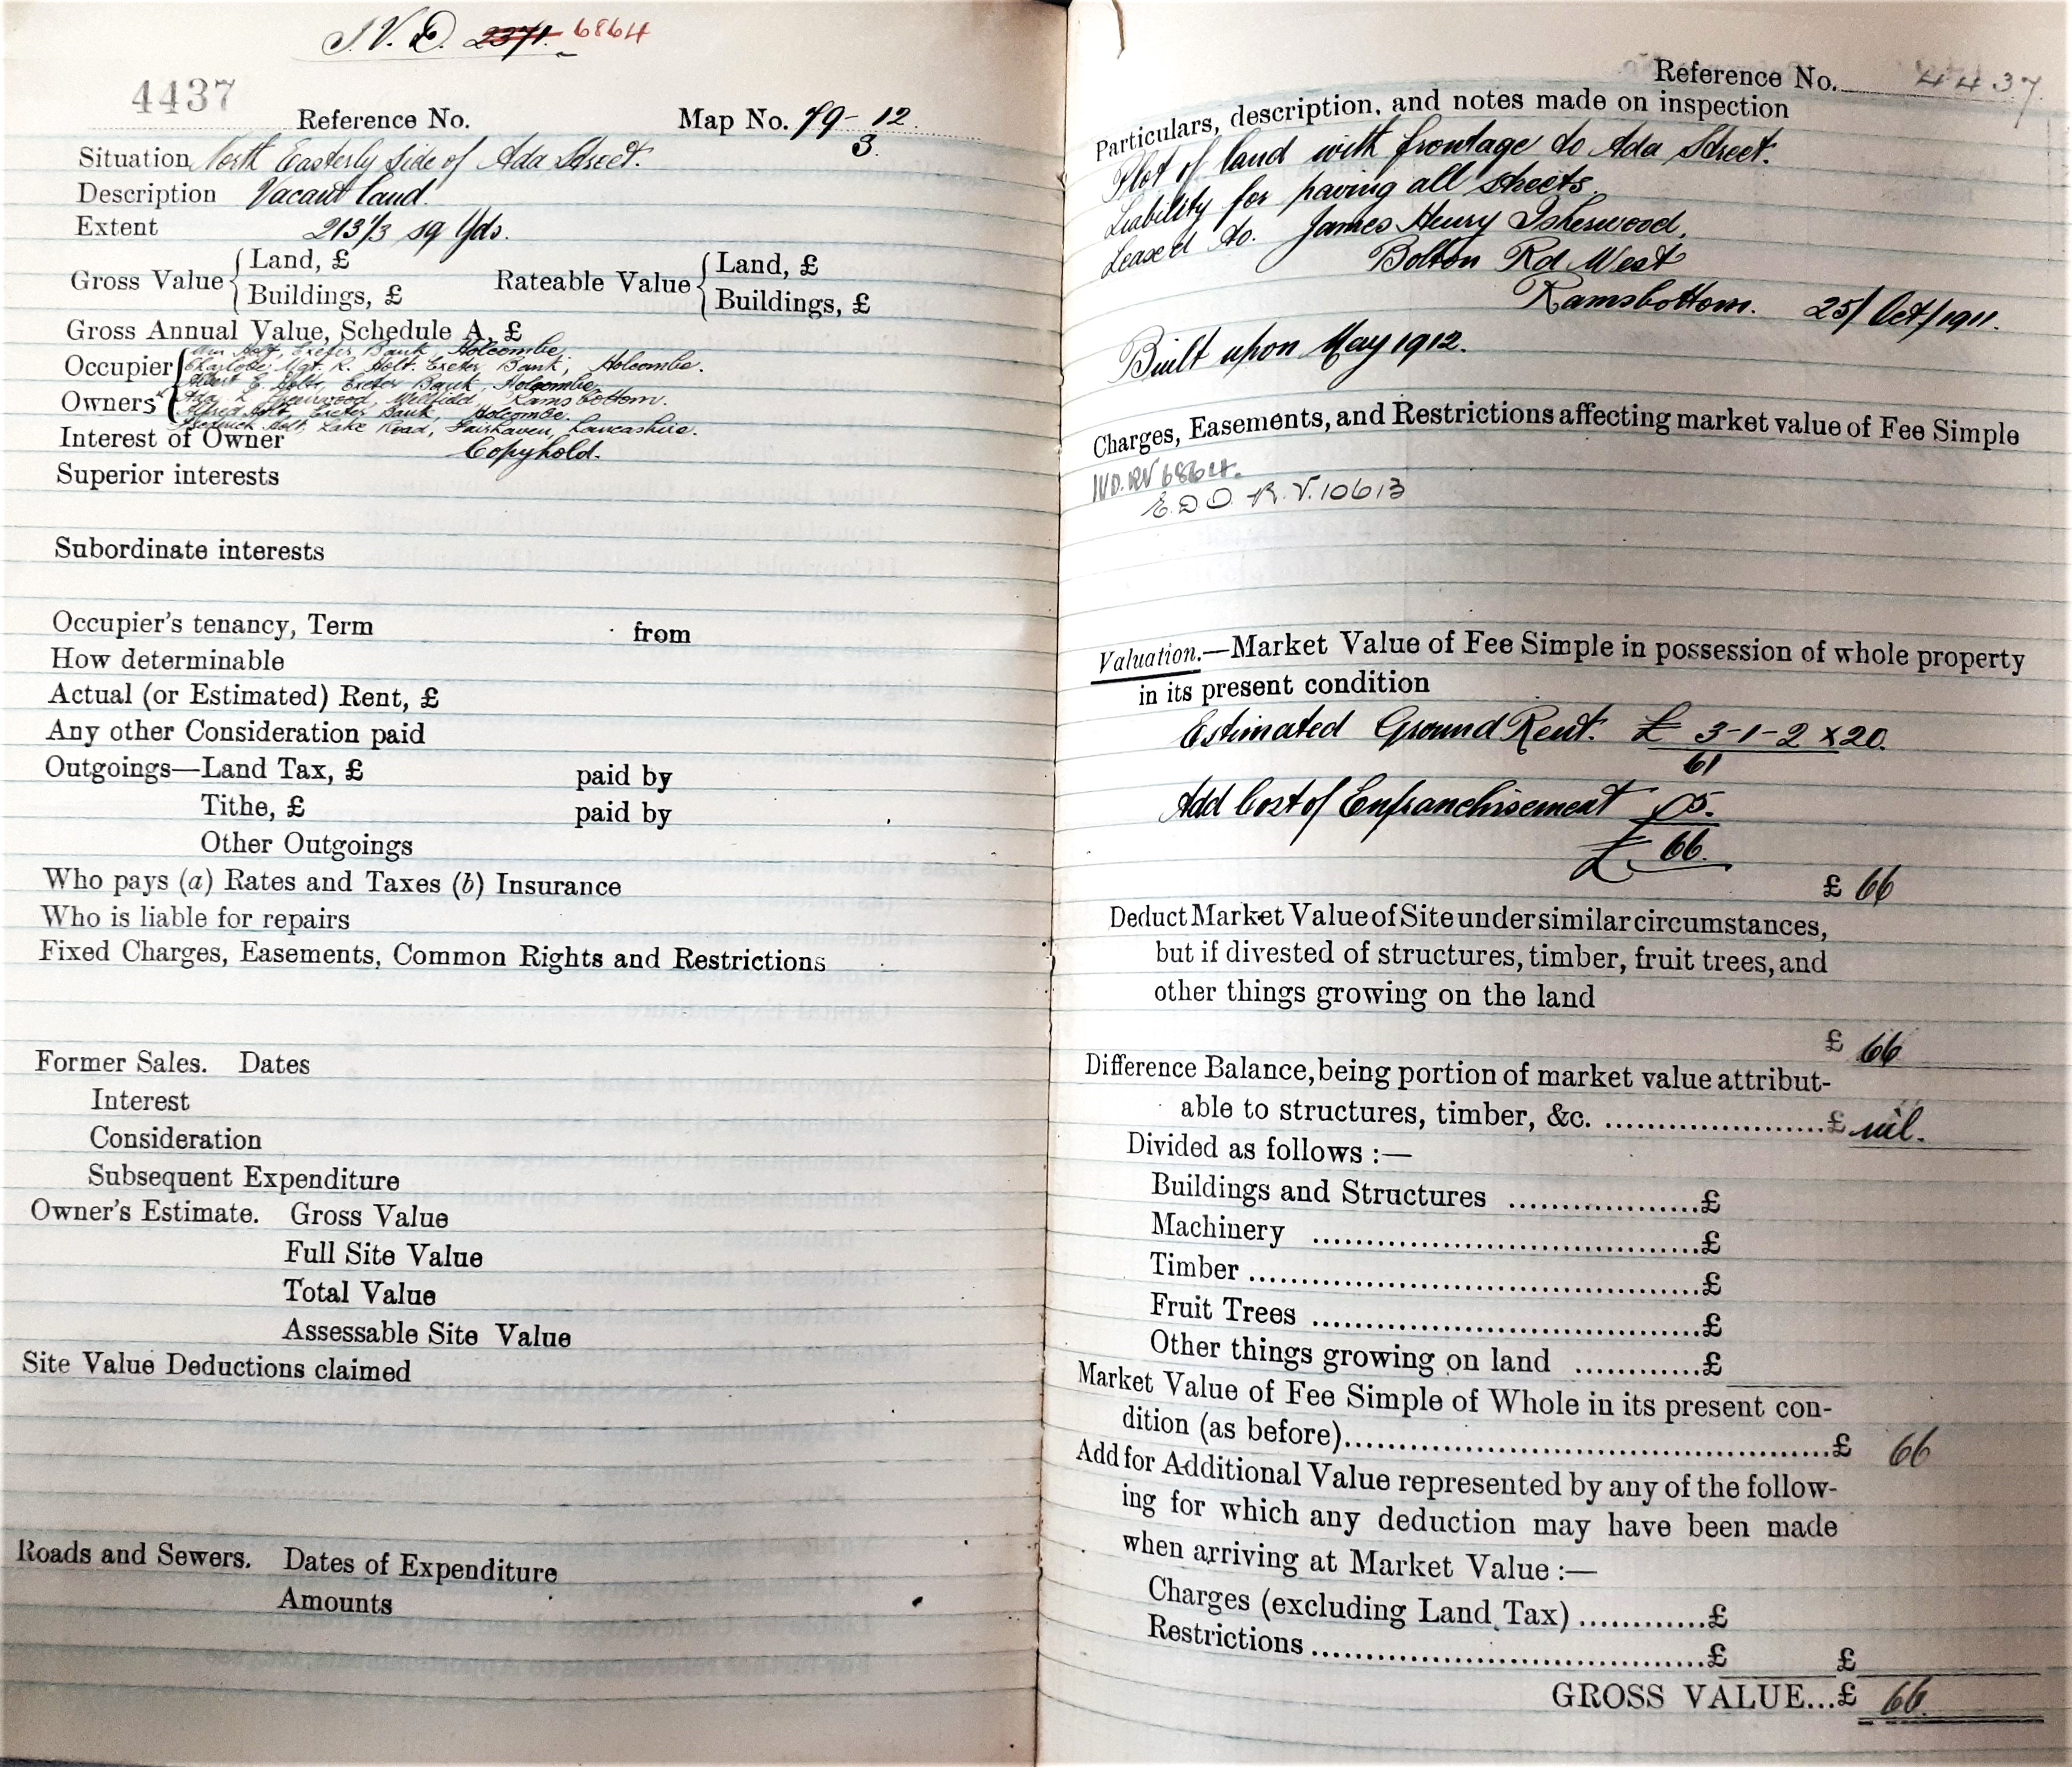 I.V.D. 2371. 6864
4437
Reference No. Map No. 79-12
3.
Situation North Easterly Side of Ada Street.
Description Vacant land.
Extent 213 1/3 sq Yds.
Gross Value { Land, £ Rateable Value { Land, £
Buildings, £ Buildings, £
Gross Annual Value, Schedule A, £
Wm Holt, Exeter Bank, Holcombe,
Occupier Charlotte, Mgt. R. Holt. Exeter Bank, Holcombe.
Albert E. Holt, Exeter Bank, Holcombe,
Owners Ada L. Greenwood, Millfield, Ramsbottom.
Alfred Holt, Exeter Bank, Holcombe.
Frederick Holt, Lake Road, Fairhaven, Lancashire.
Interest of Owner Copyhold.
Superior interests
Subordinate interests
Occupier's tenancy, Term from
How determinable
Actual (or Estimated) Rent, £
Any other Consideration paid
Outgoings—Land Tax, £ paid by
Tithe, £ paid by
Other Outgoings
Who pays (a) Rates and Taxes (b) Insurance
Who is liable for repairs
Fixed Charges, Easements, Common Rights and Restrictions
Former Sales. Dates
Interest
Consideration
Subsequent Expenditure
Owner's Estimate. Gross Value
Full Site Value
Total Value
Assessable Site Value
Site Value Deductions claimed
Roads and Sewers. Dates of Expenditure
Amounts
Reference No. 4437
Particulars, description, and notes made on inspection
Plot of land with frontage to Ada Street.
Liability for paving all streets.
Leased to. James Henry Isherwood,
Bolton Rd West
Ramsbottom. 25/Oct/1911.
Built upon May 1912.
Charges, Easements, and Restrictions affecting market value of Fee Simple
IVD. RV 6864.
E.D.O. R.V. 10613
Valuation.—Market Value of Fee Simple in possession of whole property
in its present condition
Estimated Ground Rent. £ 3-1-2 x 20.
61
Add Cost of Enfranchisement 05.
£ 66
£ 66
Deduct Market Value of Site under similar circumstances,
but if divested of structures, timber, fruit trees, and
other things growing on the land
£ 66
Difference Balance, being portion of market value attribut-
able to structures, timber, &c. ....................£ nil.
Divided as follows :—
Buildings and Structures ..................£
Machinery ....................................£
Timber ..........................................£
Fruit Trees ....................................£
Other things growing on land ............£
Market Value of Fee Simple of Whole in its present con-
dition (as before)..............................................£ 66
Add for Additional Value represented by any of the follow-
ing for which any deduction may have been made
when arriving at Market Value :—
Charges (excluding Land Tax) ............£
Restrictions ......................................£ £
GROSS VALUE...£ 66.